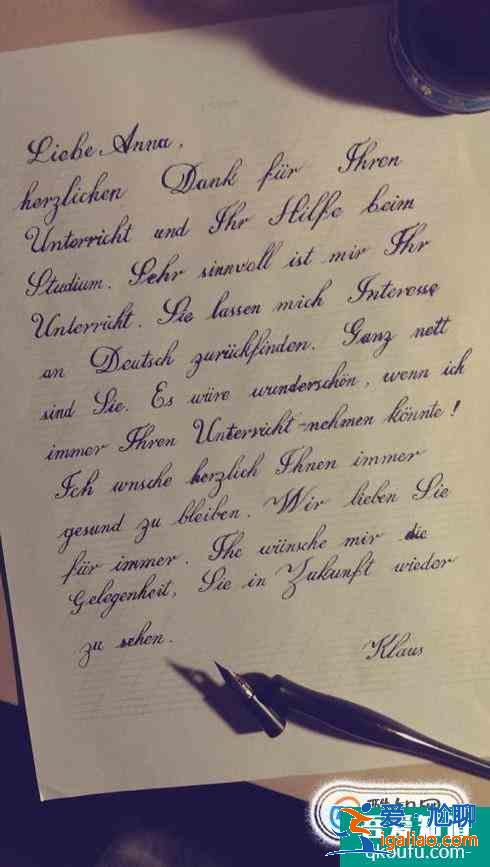 Liebe Anna,
herzlichen Dank für Ihren
Unterricht und Ihr Hilfe beim
Studium. Sehr sinnvoll ist mir Ihr
Unterricht. Sie lassen mich Interesse
an Deutsch zurückfinden. Ganz nett
sind Sie. Es wäre wunderschön, wenn ich
immer Ihren Unterricht-nehmen könnte!
Ich wnsche herzlich Ihnen immer
gesund zu bleiben. Wir lieben Sie
für immer. Ihe wünsche mir die
Gelegenheit, Sie in Zukunft wieder
zu sehen.
Klaus
爱尬聊
lgaliao.com
qkoufu.com